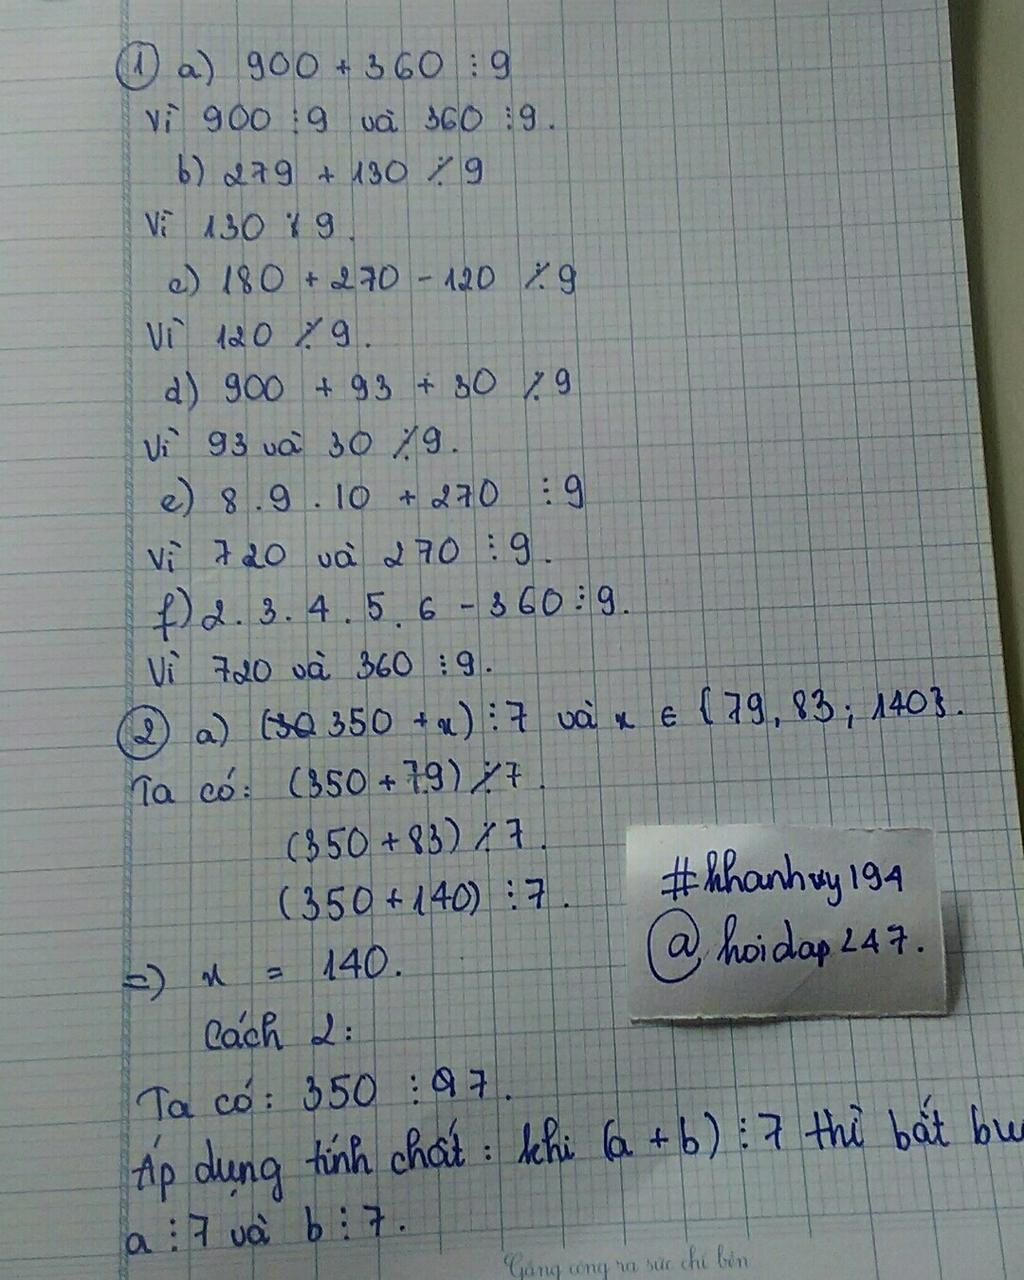 ① a) 900 + 360 ⋮ 9
Vì 900 ⋮ 9 và 360 ⋮ 9.
b) 279 + 130 ⋮̸ 9
Vì 130 ⋮̸ 9.
c) 180 + 270 - 120 ⋮̸ 9
Vì 120 ⋮̸ 9.
d) 900 + 93 + 30 ⋮̸ 9
Vì 93 và 30 ⋮̸ 9.
e) 8 . 9 . 10 + 270 ⋮ 9
Vì 720 và 270 ⋮ 9.
f) 2 . 3 . 4 . 5 . 6 - 360 ⋮ 9.
Vì 720 và 360 ⋮ 9.
② a) (350 + x) ⋮ 7 và x ∈ {79, 83; 140}.
Ta có: (350 + 79) ⋮̸ 7.
(350 + 83) ⋮̸ 7.
(350 + 140) ⋮ 7.
#khanhvy194
@hoidap247.
=> x = 140.
Cách 2:
Ta có: 350 ⋮ 7.
Áp dụng tính chất: khi (a + b) ⋮ 7 thì bắt bu
a ⋮ 7 và b ⋮ 7.
Gắng công ra sức chí bền